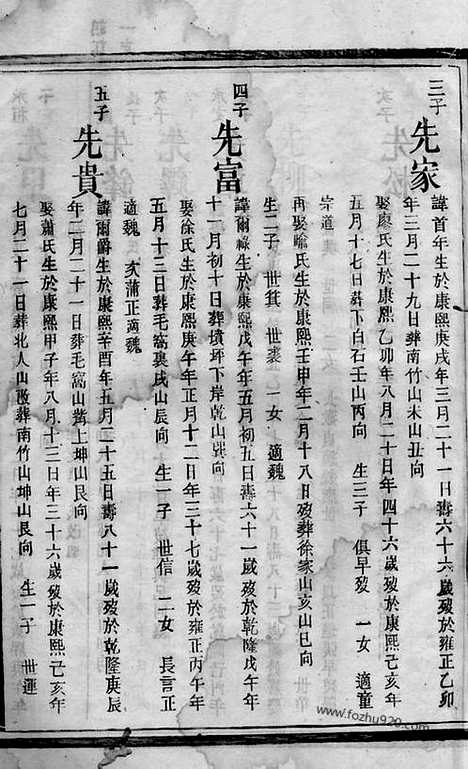 三子
先家
諱首年生於康熙庚戌年三月二十一日壽六十六歲歿於雍正乙卯
年三月二十九日葬南竹山未山丑向
娶廖氏生於康熙乙卯年八月二十日年四十六歲歿於康熙己亥年
五月十七日葬下白石壬山丙向　生三子　俱早歿　一女　適童
宗道
再娶喻氏生於康熙壬申年二月十八日歿葬徐家山亥山巳向
生二子　世箕　世裘　一女　適魏
四子
先富
諱爾祿生於康熙戊午年五月初五日壽六十一歲歿於乾隆戊午年
十一月初十日葬墳坪下岸乾山巽向
娶徐氏生於康熙庚午年正月十二日年三十七歲歿於雍正丙午年
五月十三日葬毛窩裏戌山辰向　生一子　世信　二女　長言正
適魏　次蒲正適魏
五子
先貴
諱爾爵生於康熙辛酉年五月二十五日壽八十一歲歿於乾隆庚辰
年二月二十一日葬毛窩山嘴上坤山艮向
娶蕭氏生於康熙甲子年八月十三日年三十六歲歿於康熙己亥年
七月二十一日葬北人山改葬南竹山坤山艮向　生一子　世運
www.fozhu920.com